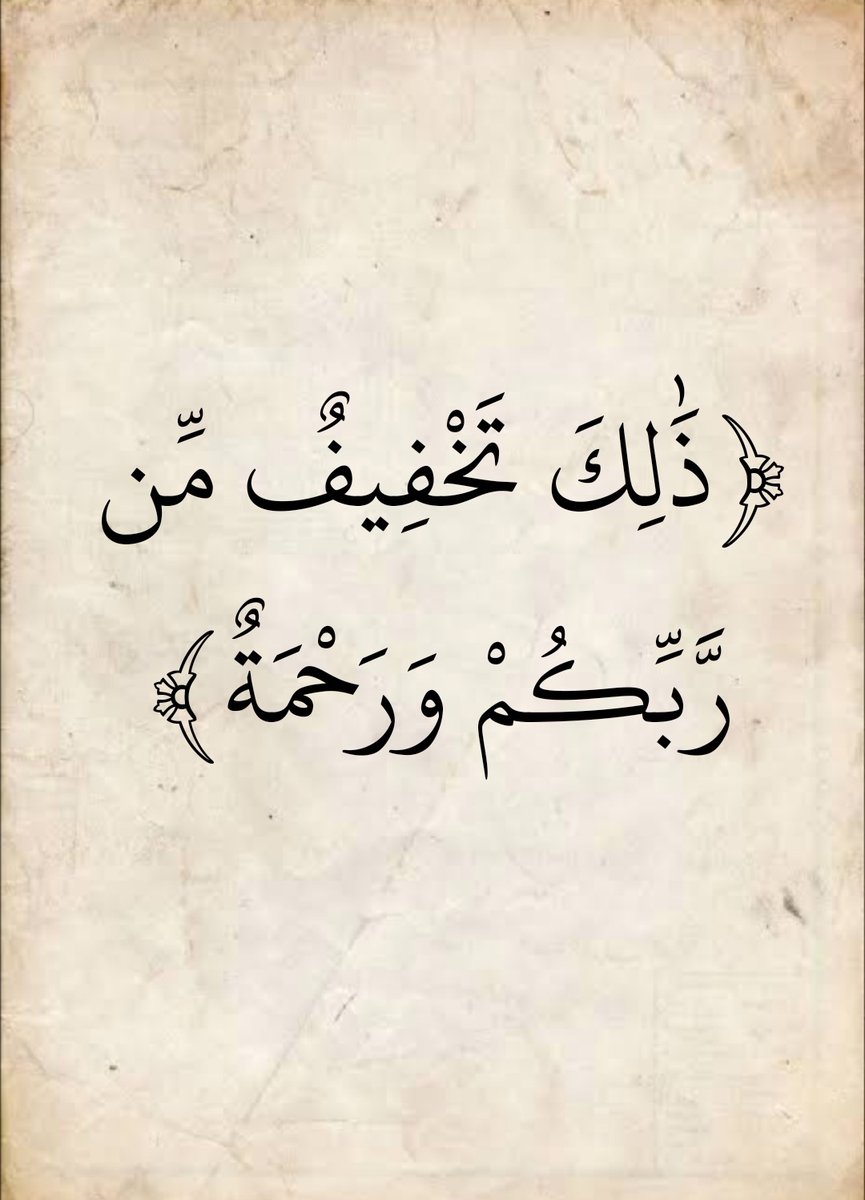 ﴿ذَٰلِكَ تَخْفِيفٌ مِّن
رَّبِّكُمْ وَرَحْمَةٌ﴾